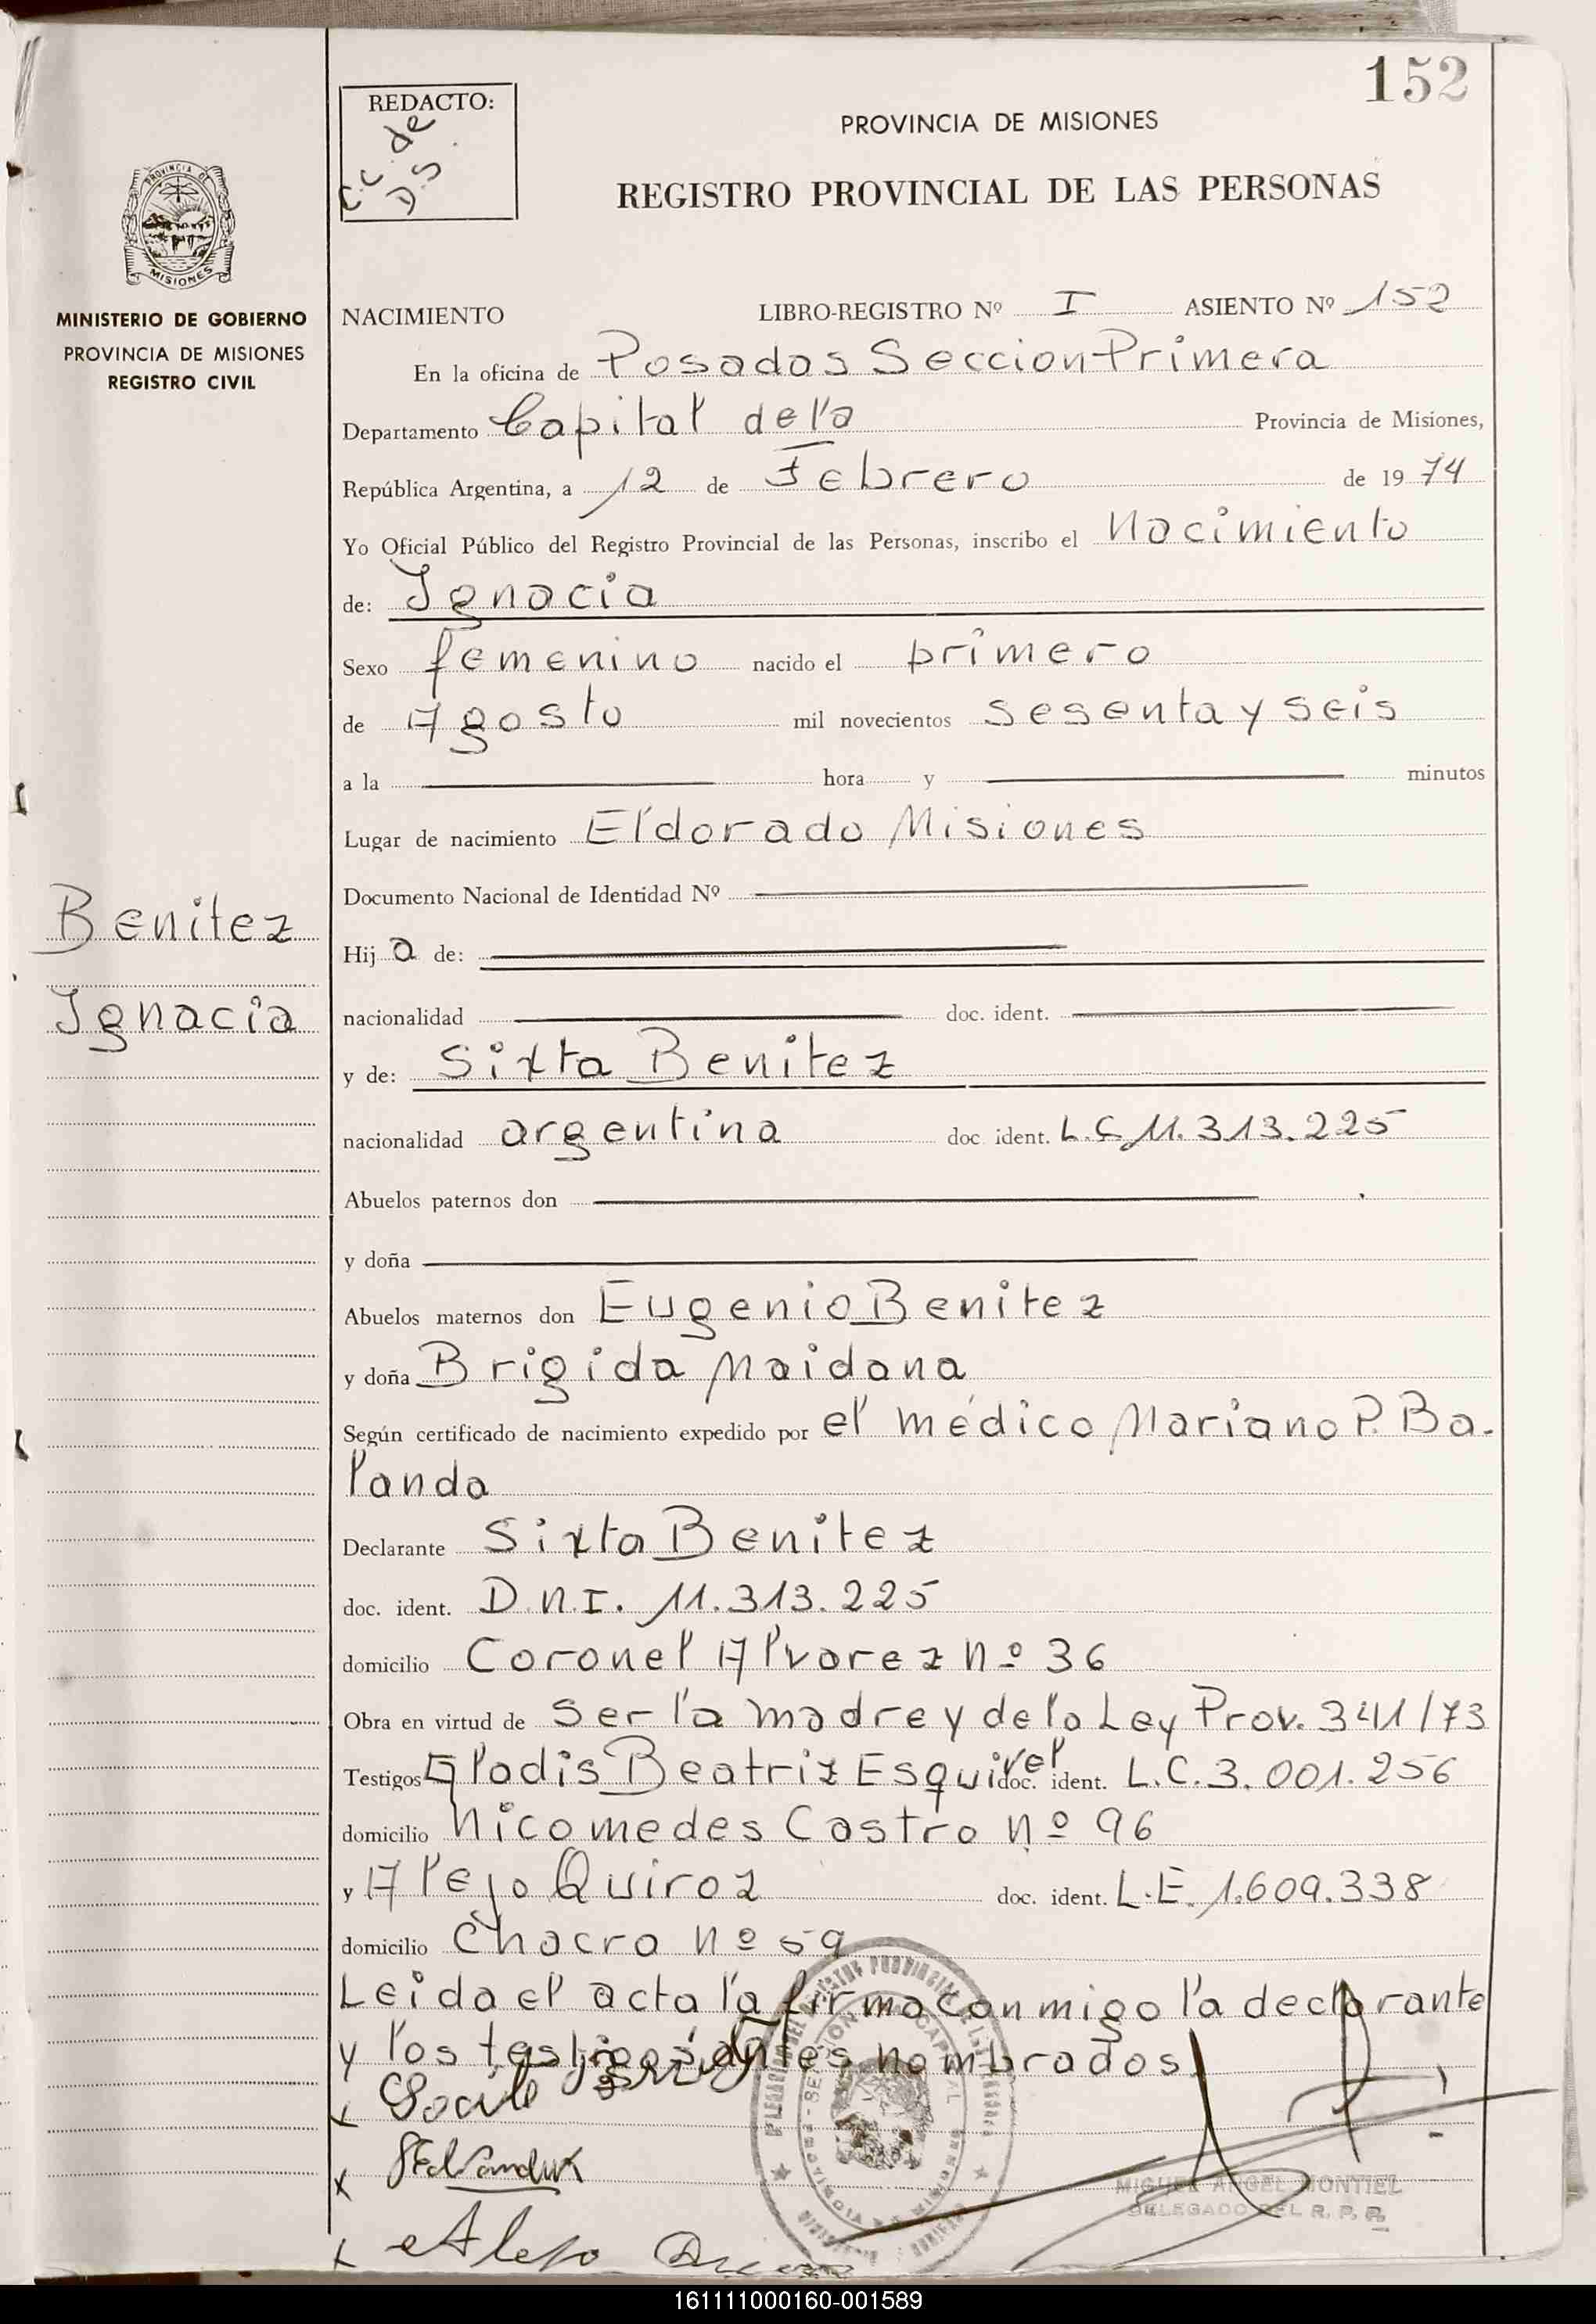 152
REDACTO:
C.C. de
D.S.
PROVINCIA DE MISIONES
REGISTRO PROVINCIAL DE LAS PERSONAS
PROVINCIA DE
MISIONES
MINISTERIO DE GOBIERNO
PROVINCIA DE MISIONES
REGISTRO CIVIL
NACIMIENTO LIBRO-REGISTRO Nº I ASIENTO Nº 152
En la oficina de Posadas Seccion Primera
Departamento Capital de la Provincia de Misiones,
República Argentina, a 12 de Febrero de 1974
Yo Oficial Público del Registro Provincial de las Personas, inscribo el Nacimiento
de: Ignacia
Sexo femenino nacido el primero
de Agosto mil novecientos sesenta y seis
a la hora y minutos
Lugar de nacimiento Eldorado Misiones
Documento Nacional de Identidad Nº
Benitez
Hija de:
Ignacia
nacionalidad doc. ident.
y de: Sixta Benitez
nacionalidad argentina doc ident. L.C. 11.313.225
Abuelos paternos don
y doña
Abuelos maternos don Eugenio Benitez
y doña Brigida Maidana
Según certificado de nacimiento expedido por el médico Mariano P. Ba-
landa
Declarante Sixta Benitez
doc. ident. D.N.I. 11.313.225
domicilio Coronel Alvarez nº 36
Obra en virtud de ser la madre y de la Ley Prov. 341/73
Testigos Gladis Beatriz Esquivel doc. ident. L.C. 3.001.256
domicilio Nicomedes Castro nº 96
y Alejo Quiroz doc. ident. L.E. 1.609.338
domicilio Chacra nº 59
Leida el acta la firma conmigo la declarante
y los testigos antes nombrados.
MIGUEL ANGEL MONTIEL
DELEGADO DEL R. P. P.
Alejo
161111000160-001589